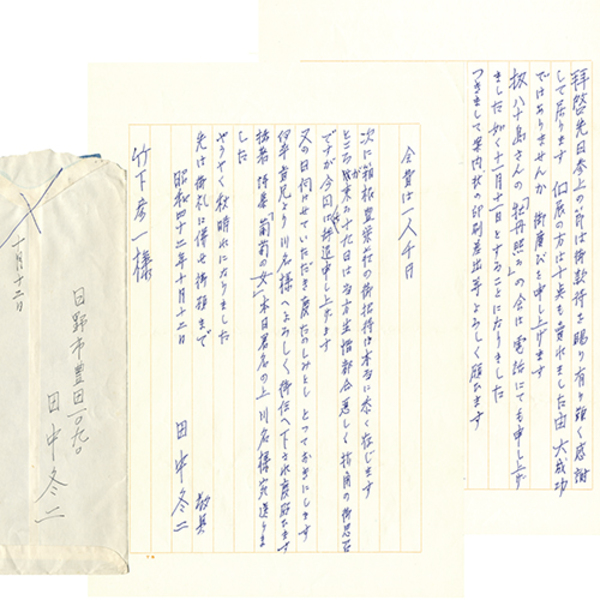 拝啓 先日参上の節は御歓待を賜り有り難く感謝
して居ります 個展の方は十点も売れました由 大成功
ではありませんか 御慶びを申し上げます
扨 八十島さんの「牡丹照る」の会は電話にても申し上げ
ました如く十一月十日とすることになりました
つきまして案内状の印刷差出等よろしく願ひます
会費は一人千円
次に箱根豊栄荘の御招待は本当に忝く存じます
ところが二十九日は当方生憎都合悪しく折角の御思召
ですが今回は拝辞申し上げます
又の日伺はせていただき度たのしみとしとつておきにします
何卒貴兄より川名様へよろしく御伝へ下され度願ひます
拙著 詩集「葡萄の女」本日署名の上川名様宛送りま
した
やうやく秋晴れになりました
先は御礼に併せ御願まで
敬具
昭和四十二年十月十二日
田中冬二
竹下彦一様
十月十二日
日野市豊田一〇九〇
田中冬二